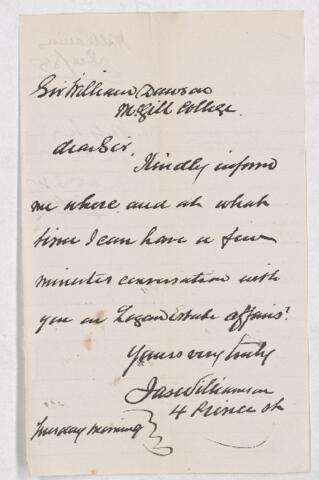 Sir William Dawson
McGill College.
dear Sir,
Kindly inform
me where and at what
time I can have a few
minutes conversation with
you on Logan Estate affairs?
Yours very truly
Jas Williamson
4 Prince St
Tuesday morning